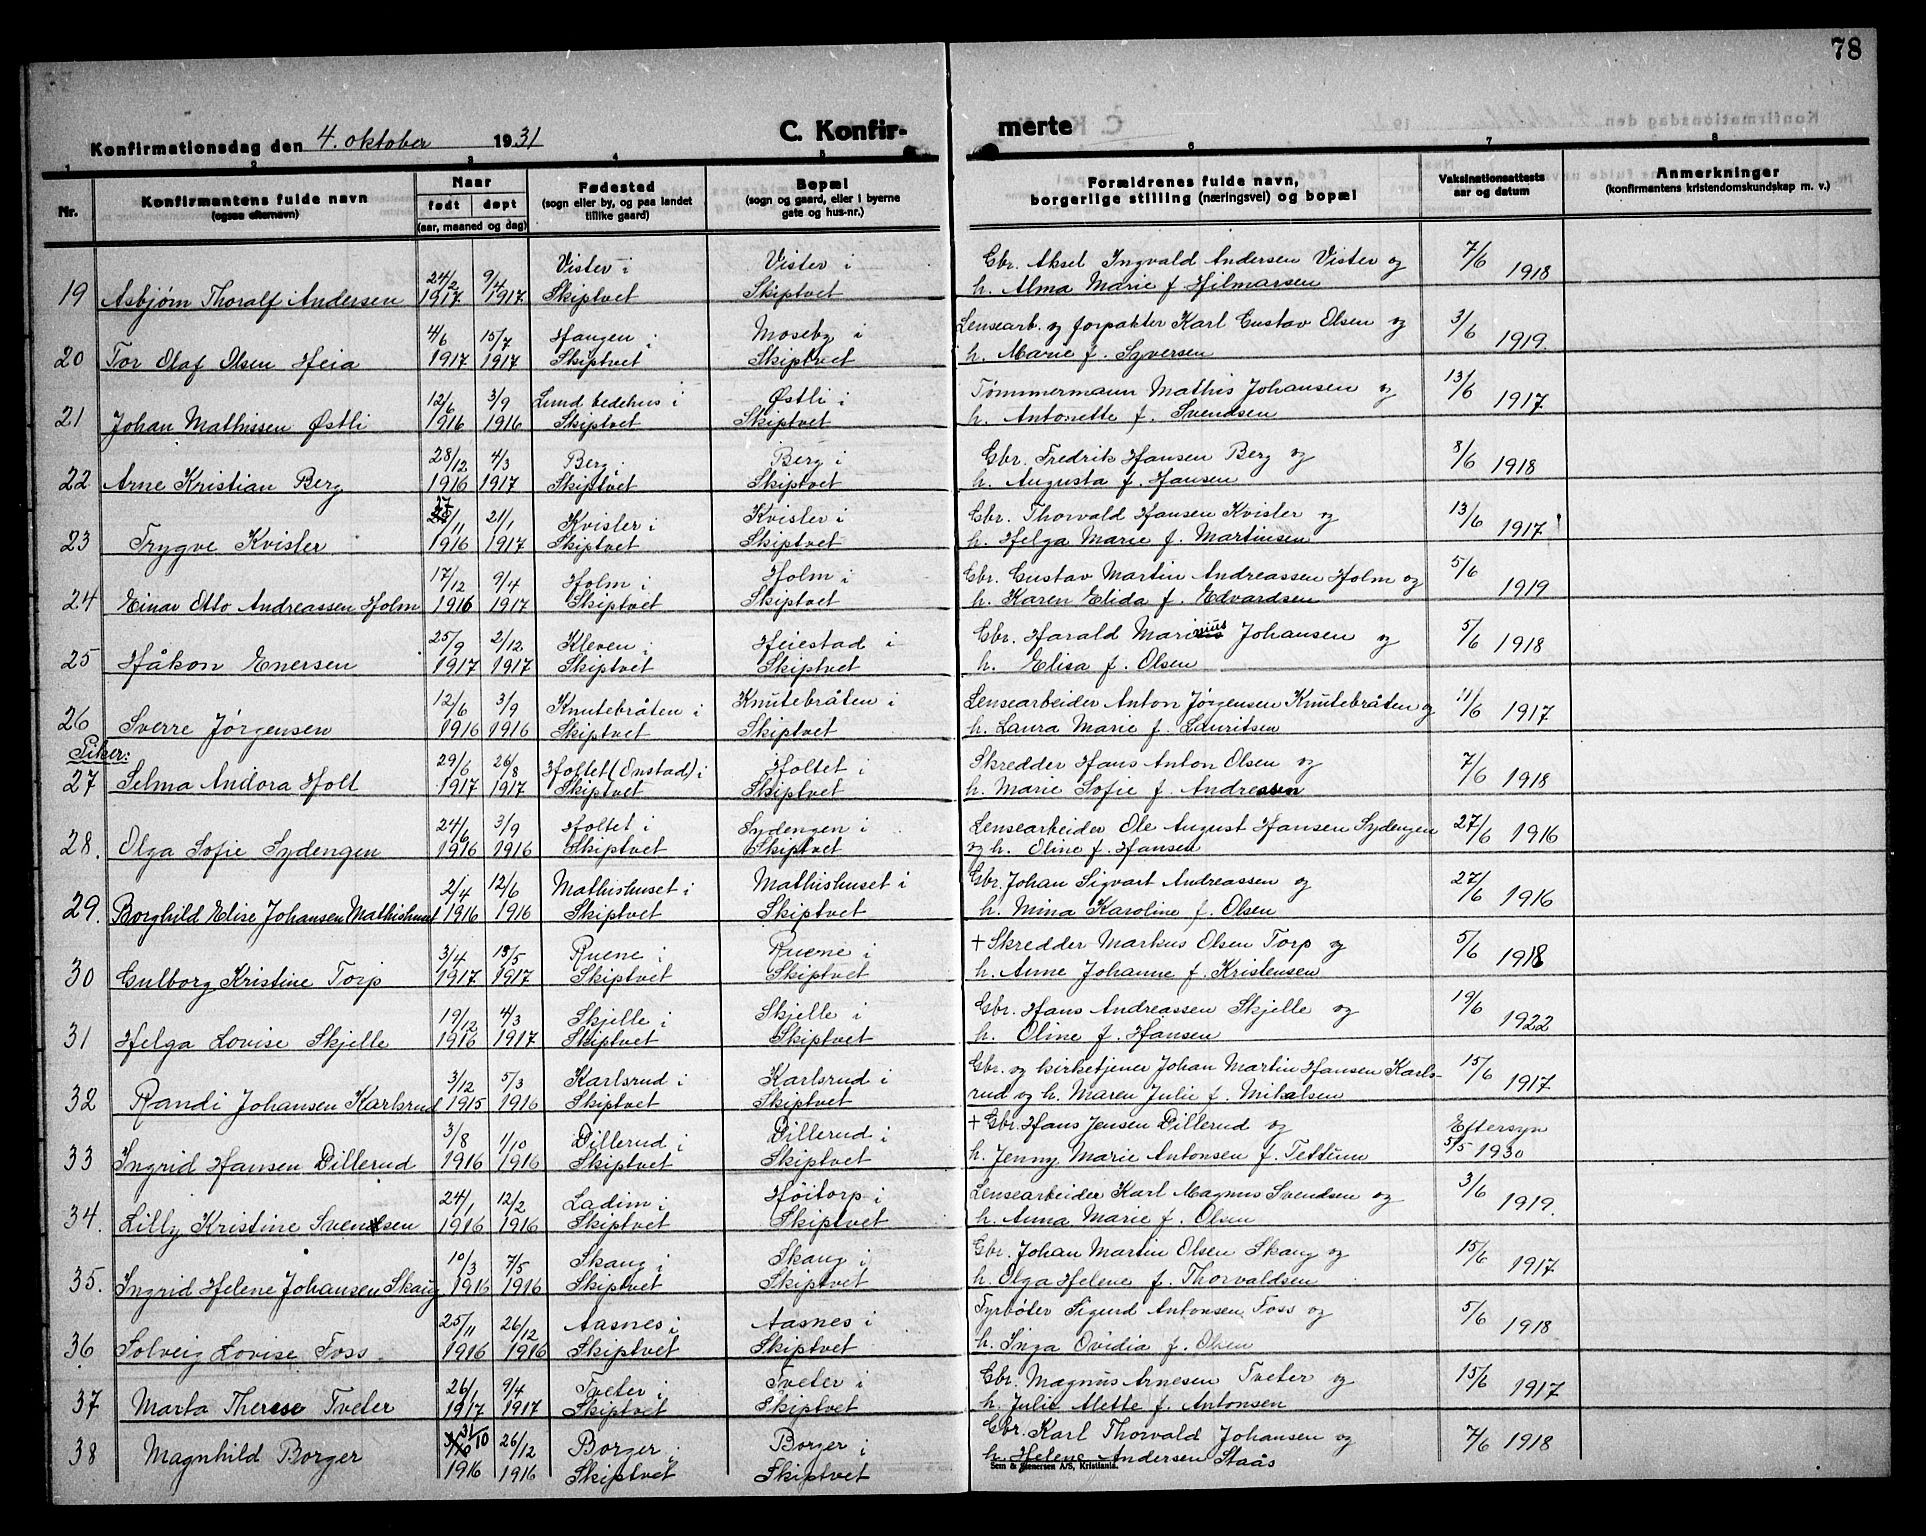 78
Konfirmationsdag den 4. oktober 1931 C. Konfir- merte
1 2 3 4 5 6 7 8
Nr. Konfirmantens fulde navn (ogsaa efternavn) Naar født døpt (aar, maaned og dag) Fødested (sogn eller by, og paa landet tillike gaard) Bopæl (sogn og gaard, eller i byerne gate og hus-nr.) Forældrenes fulde navn, borgerlige stilling (næringsvei) og bopæl Vaksinationsattests aar og datum Anmerkninger (konfirmantens kristendomskundskap m. v.)
24/2 9/4 Vister i Vister i Gbr. Aksel Ingvald Andersen Vister og 7/6
19 Asbjørn Thoralf Andersen 1917 1917 Skiptvet Skiptvet h. Alma Marie f. Hilmarsen 1918
4/6 15/7 Haugen i Moseby i Lensearb. og forpakter Karl Gustav Olsen og 3/6
20 Tor Olaf Olsen Heia 1917 1917 Skiptvet Skiptvet h. Marie f. Syversen 1919
12/6 3/9 Lund bedehus i Østli i Tømmermann Mathis Johansen og 13/6
21 Johan Mathissen Østli 1916 1916 Skiptvet Skiptvet h. Antonette f. Svendsen 1917
28/12 4/3 Berg i Berg i Gbr. Fredrik Hansen Berg og 8/6
22 Arne Kristian Berg 1916 1917 Skiptvet Skiptvet h. Augusta f. Hansen 1918
27/11 21/1 Kvister i Kvister i Gbr. Thorvald Hansen Kvister og 13/6
23 Trygve Kvister 1916 1917 Skiptvet Skiptvet h. Helga Marie f. Martinsen 1917
17/12 9/4 Holm i Holm i Gbr. Gustav Martin Andreassen Holm og 5/6
24 Einar Otto Andreassen Holm 1916 1917 Skiptvet Skiptvet h. Karen Elida f. Edvardsen 1919
25/9 2/12 Kleven i Heiestad i Gbr. Harald Marinius Johansen og 5/6
25 Håkon Enersen 1917 1917 Skiptvet Skiptvet h. Elisa f. Olsen 1918
12/6 3/9 Knutebråten i Knutebråten i Lensearbeider Anton Jørgensen Knutebråten og 11/6
26 Sverre Jørgensen 1916 1916 Skiptvet Skiptvet h. Laura Marie f. Lauritsen 1917
Piker:
29/6 26/8 Holtet (Onstad) i Holtet i Skredder Hans Anton Olsen og 7/6
27 Selma Andora Holt 1917 1917 Skiptvet Skiptvet h. Marie Sofie f. Andresen 1918
24/6 3/9 Holtet i Sydengen i Lensearbeider Ole August Hansen Sydengen 27/6
28. Olga Sofie Sydengen 1916 1916 Skiptvet Skiptvet og h. Oline f. Hansen 1916
2/4 12/6 Mathishuset i Mathishuset i Gbr. Johan Sigvart Andreassen og 27/6
29. Borghild Elise Johansen Mathishuset 1916 1916 Skiptvet Skiptvet h. Mina Karoline f. Olsen 1916
3/4 13/5 Ruene i Ruene i + Skredder Markus Olsen Torp og 5/6
30 Gulborg Kristine Torp 1917 1917 Skiptvet Skiptvet h. Anne Johanne f. Kristensen 1918
19/12 4/3 Skjelle i Skjelle i Gbr. Hans Andreassen Skjelle og 19/6
31 Helga Lovise Skjelle 1916 1917 Skiptvet Skiptvet h. Oline f. Hansen 1922
3/12 5/3 Karlsrud i Karlsrud i Gbr. og kirketjener Johan Martin Hansen Karls- 15/6
32 Randi Johansen Karlsrud 1915 1916 Skiptvet Skiptvet rud og h. Maren Julie f. Mikalsen 1917
3/8 1/10 Dillerud i Dillerud i + Gbr. Hans Jensen Dillerud og Eftersyn
33 Ingrid Hansen Dillerud 1916 1916 Skiptvet Skiptvet h. Jenny Marie Antonsen f. Tettum 5/5 1930
24/1 12/2 Ladim i Høitorp i Lensearbeider Karl Magnus Svendsen og 3/6
34. Lilly Kristine Svendsen 1916 1916 Skiptvet Skiptvet h. Anna Marie f. Olsen 1919.
10/3 7/5 Skaug i Skaug i Gbr. Johan Martin Olsen Skaug og 15/6
35. Ingrid Helene Johansen Skaug 1916 1916 Skiptvet Skiptvet h. Olga Helene f. Thorvaldsen 1917
25/11 26/12 Aasnes i Aasnes i Fyrbøter Sigurd Antonsen Foss og 5/6
36 Solveig Lovise Foss 1916 1916 Skiptvet Skiptvet h. Inga Ovidia f. Olsen 1918
26/1 9/4 Tveter i Tveter i Gbr. Magnus Arnesen Tveter og 15/6
37 Marta Therese Tveter 1917 1917 Skiptvet Skiptvet h. Julie Alette f. Antonsen 1917
31/10 26/12 Borger i Borger i Gbr. Karl Thorvald Johansen og 7/6 1918
38 Magnhild Borger 1916 1916 Skiptvet Skiptvet h. Helene Andersen Staås
Sem & Stenersen A/S, Kristiania.